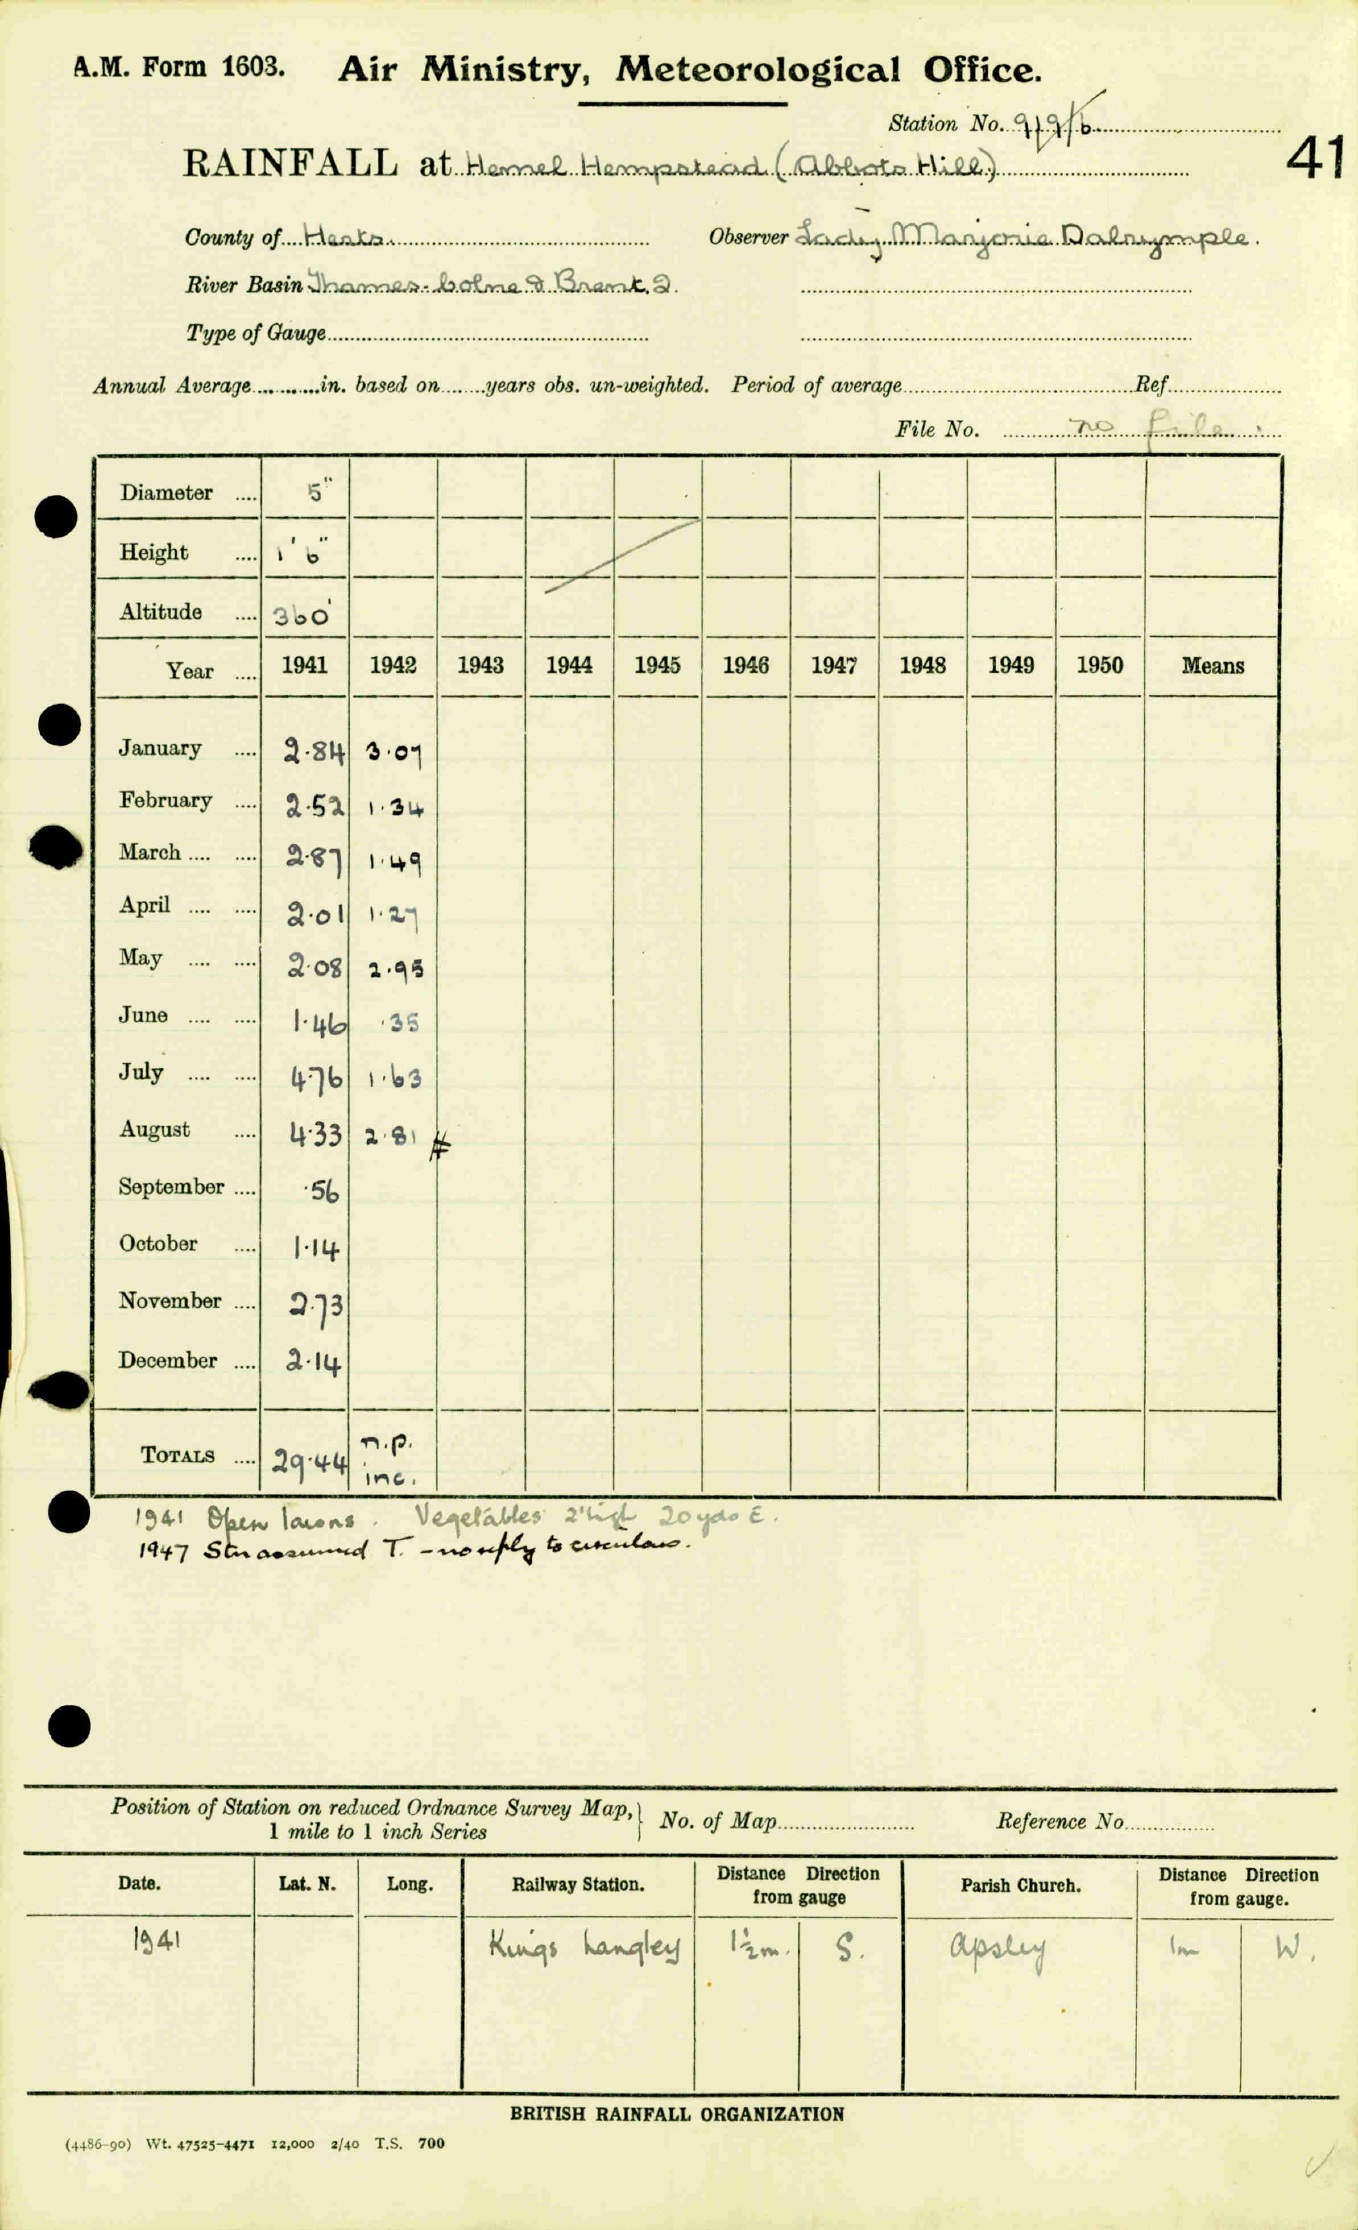 A.M. Form 1603. Air Ministry, Meteorological Office.
Station No.
41
RAINFALL at Hemel Hempstead (Abbots Hill)
County of Herts. Observer Lady Marjorie Dalrymple.
River Basin Thames-Colne & Brent. 2.
Type of Gauge
Annual Average in. based on years obs. un-weighted. Period of average Ref
File No. no file.
Diameter 5"
Height 1' 6"
Altitude 360'
Year 1941 1942 1943 1944 1945 1946 1947 1948 1949 1950 Means
January 2.84 3.07
February 2.52 1.34
March 2.87 1.49
April 2.01 1.27
May 2.08 2.95
June 1.46 .35
July 4.76 1.63
August 4.33 2.81 #
September .56
October 1.14
November 2.73
December 2.14
TOTALS 29.44 n.p. inc.
1941 Open lawns. Vegetables 2' high 20 yds E.
1947 Stn assumed T. - no reply to circulars.
Position of Station on reduced Ordnance Survey Map, } No. of Map Reference No.
1 mile to 1 inch Series
Date. Lat. N. Long. Railway Station. Distance Direction from gauge Parish Church. Distance Direction from gauge.
1941 Kings Langley 1½m. S. Apsley 1m W.
BRITISH RAINFALL ORGANIZATION
(4486-90) Wt. 47525-4471 12,000 2/40 T.S. 700